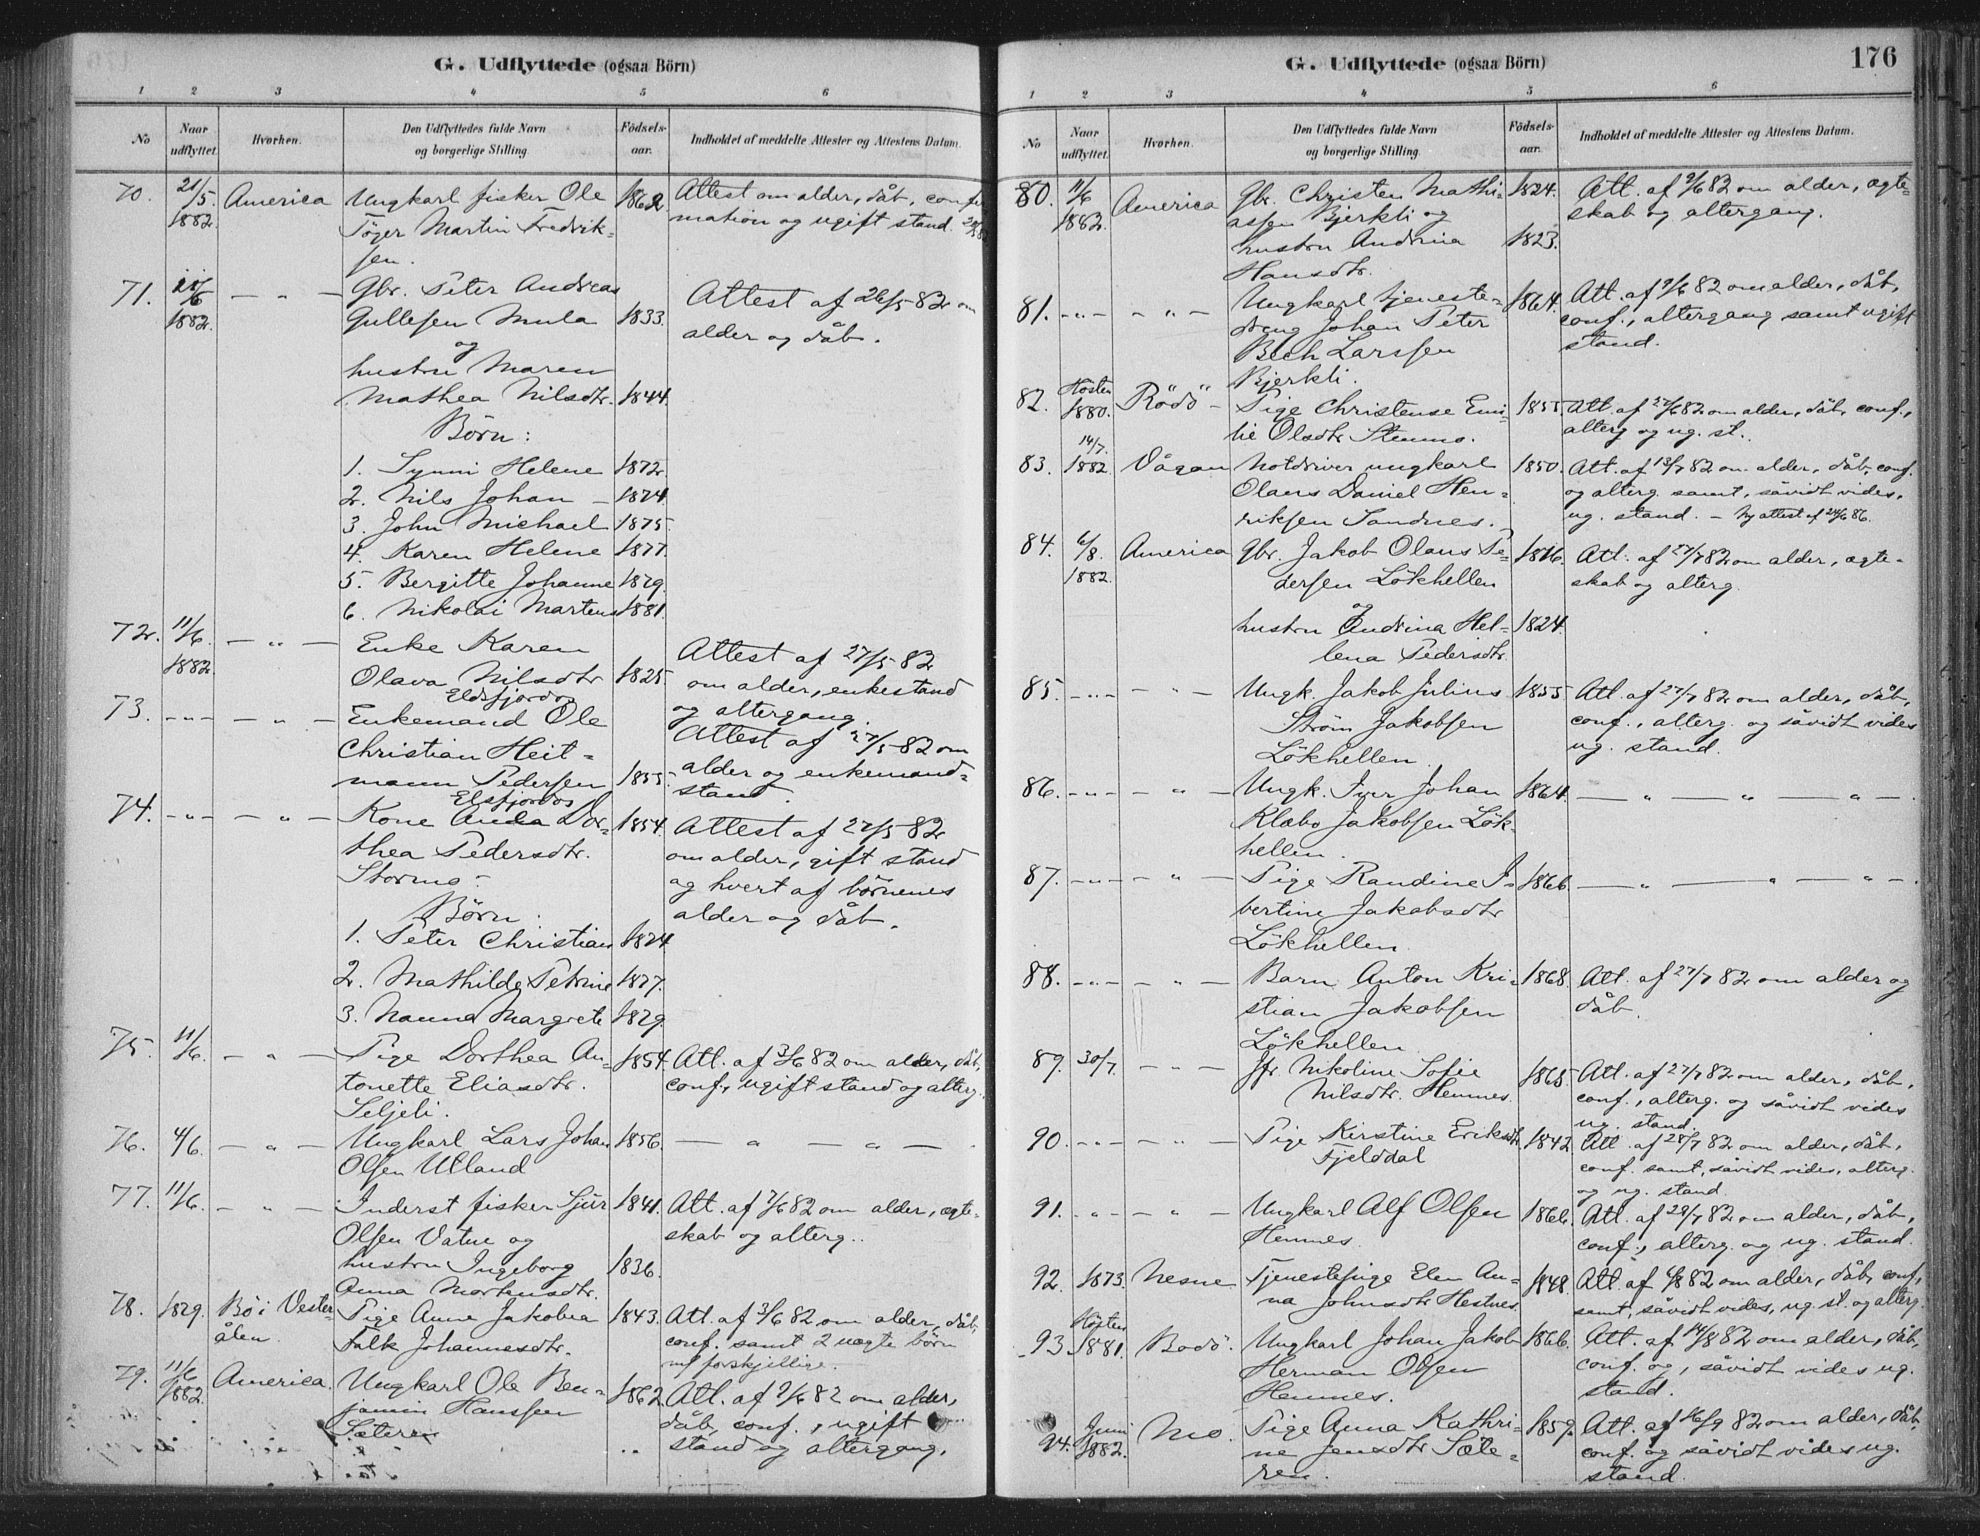 G. Udflyttede (ogsaa Börn)
1 2 3 4 5 6
No
Naar udflyttet.
Hvorhen.
Den Udflyttedes fulde Navn og borgerlige Stilling.
Födsels-aar.
Indholdet af meddelte Attester og Attestens Datum.
70. 21/5 1882. America Ungkarl fisker Ole 1862 Attest om alder, dåb, confir
Töger Martin Fredrik- mation og ugift stand.
sen.
71. 1882. — " — Gbr. Peter Andreas
Gullesen Mula 1833. Attest af 26/5 82 om
og alder og dåb.
hustru Maren
Mathea Nilsdtr. 1844.
Börn:
1. Synni Helene 1872
2. Nils Johan — 1874
3. John Michael 1875.
4. Karen Helene 1877.
5. Bergitte Johanne 1879.
6. Nikolai Martens 1881.
72. 11/6 1882. — " — Enke Karen Attest af 27/5 82
Olava Nilsdtr 1825. om alder, enkestand
Eldsfjorden og altergang.
73. - " - — " — Enkemand Ole Attest af 27/5 82 om
Christian Heit- alder og enkemand-
mann Pedersen 1855. stand.
Elsfjorden
74. - " - — " — Kone Anna Dor- 1854. Attest af 27/5 82
thea Pedersdtr. om alder, gift stand
Stormo. og hvert af börnenes
Börn: alder og dåb.
1. Peter Christian 1874
2. Mathilde Petrine 1877.
3. Nanna Margrete 1879.
75. 11/6. — " — Pige Dorthea An- 1854. Att. af 3/6 82 om alder, dåb,
tonette Eliasdtr. conf., ugift stand og alterg.
Seljeli.
76. 4/6. — " — Ungkarl Lars Johan 1856. — " — " —
Olsen Utland
77. 11/6. — " — Inderst fisker Sjur 1841. Att. af 7/6 82 om alder, ægte-
Olsen Vatne og skab og alterg.
hustru Ingeborg 1836.
Anna Mortensdtr.
78. 1879. Bö i Vester- Pige Anne Jakobea 1843. Att. af 3/6 82 om alder, dåb,
ålen. Falk Johannesdtr. conf. samt 2 uægte börn
79. 11/6 1882. America. Ungkarl Ole Ben- 1862 Att. af 9/6 82 om alder,
jamin Hanssen dåb, conf., ugift
Sæteren stand og altergang.
G. Udflyttede (ogsaa Börn) 176
1 2 3 4 5 6
No
Naar udflyttet.
Hvorhen.
Den Udflyttedes fulde Navn og borgerlige Stilling.
Födsels-aar.
Indholdet af meddelte Attester og Attestens Datum.
80. 11/6 1882. America Gbr. Christen Mathi- 1824. Att. af 9/6 82 om alder, ægte-
assen Bjerkli og skab og altergang.
hustru Andrina 1823.
Hansdtr.
81. - " - - " - Ungkarl tjeneste- 1864. Att. af 9/6 82 om alder, dåb,
dreng Johan Peter conf., altergang samt ugift
Bech Larssen stand.
Bjerkli.
82. Hösten 1880. Rödö - Pige Christense Emi- 1855. Att. af 27/6 82 om alder, dåb, conf.,
lie Olsdtr Stenmo. alterg og ug. st.
83. 14/7. 1882 Vågan Notdriver ungkarl 1850. Att. af 13/7 82 om alder, dåb, conf.
Olaus Daniel Hen- og alterg. samt, såvidt vides,
riksen Sandnes. ug. stand. — Ny attest af 24/6 86.
84. 6/8. 1882. America Gbr. Jakob Olaus Pe- 1816. Att. af 27/7 82 om alder, ægte-
dersen Lökhellen skab og alterg.
og
hustru Andrina Hel- 1824.
lena Pedersdtr.
85. - " - - " - Ungk. Jakob Julius 1855 Att. af 27/7 82 om alder, dåb,
Ström Jakobsen conf., alterg. og såvidt vides
Lökhellen. ug. stand.
86. - " - - " - Ungk. Iver Johan 1864. — " — " — " —.
Klæbo Jakobsen Lök-
hellen.
87. - " - - " - Pige Randine I- 1866. — " — " — " —.
bertine Jakobsdtr
Lökhellen.
88. - " - - " - Barn Anton Kri- 1868. Att. af 27/7 82 om alder og
stian Jakobsen dåb.
Lökhellen
89. 30/7. - " - Jfr Nikoline Sofie 1865. Att. af 27/7 82 om alder, dåb,
Nilsdtr. Hemnes. conf., alterg. og såvidt vides
ug. stand.
90. - " - - " - Pige Kirstine Eriksdtr. 1842. Att. af 28/7 82 om alder, dåb,
Fjelddal conf. samt, såvidt vides, alterg.
og ug. stand.
91. - " - - " - Ungkarl Alf Olsen 1866. Att. af 28/7 82 om alder, dåb,
Hemnes. conf., alterg. og ug. stand.
92. 1873. Nesne Tjenestepige Elen An- 1848. Att. af 4/8 82 om alder, dåb, conf,
na Johnsdtr Hestnes. samt, såvidt vides, ug. st. og alterg.
93 Hösten 1881. Bodö. Ungkarl Johan Jakob 1866. Att. af 14/8 82 om alder, dåb,
Herman Olsen conf. og, såvidt vides ug.
Hemnes. stand.
94. Juni 1882. Mo. Pige Anna Kathri- 1859. Att. af 16/9 82 om alder, dåb
ne Jensdtr Sæte- conf. og såvidt vides ug.
ren. stand.